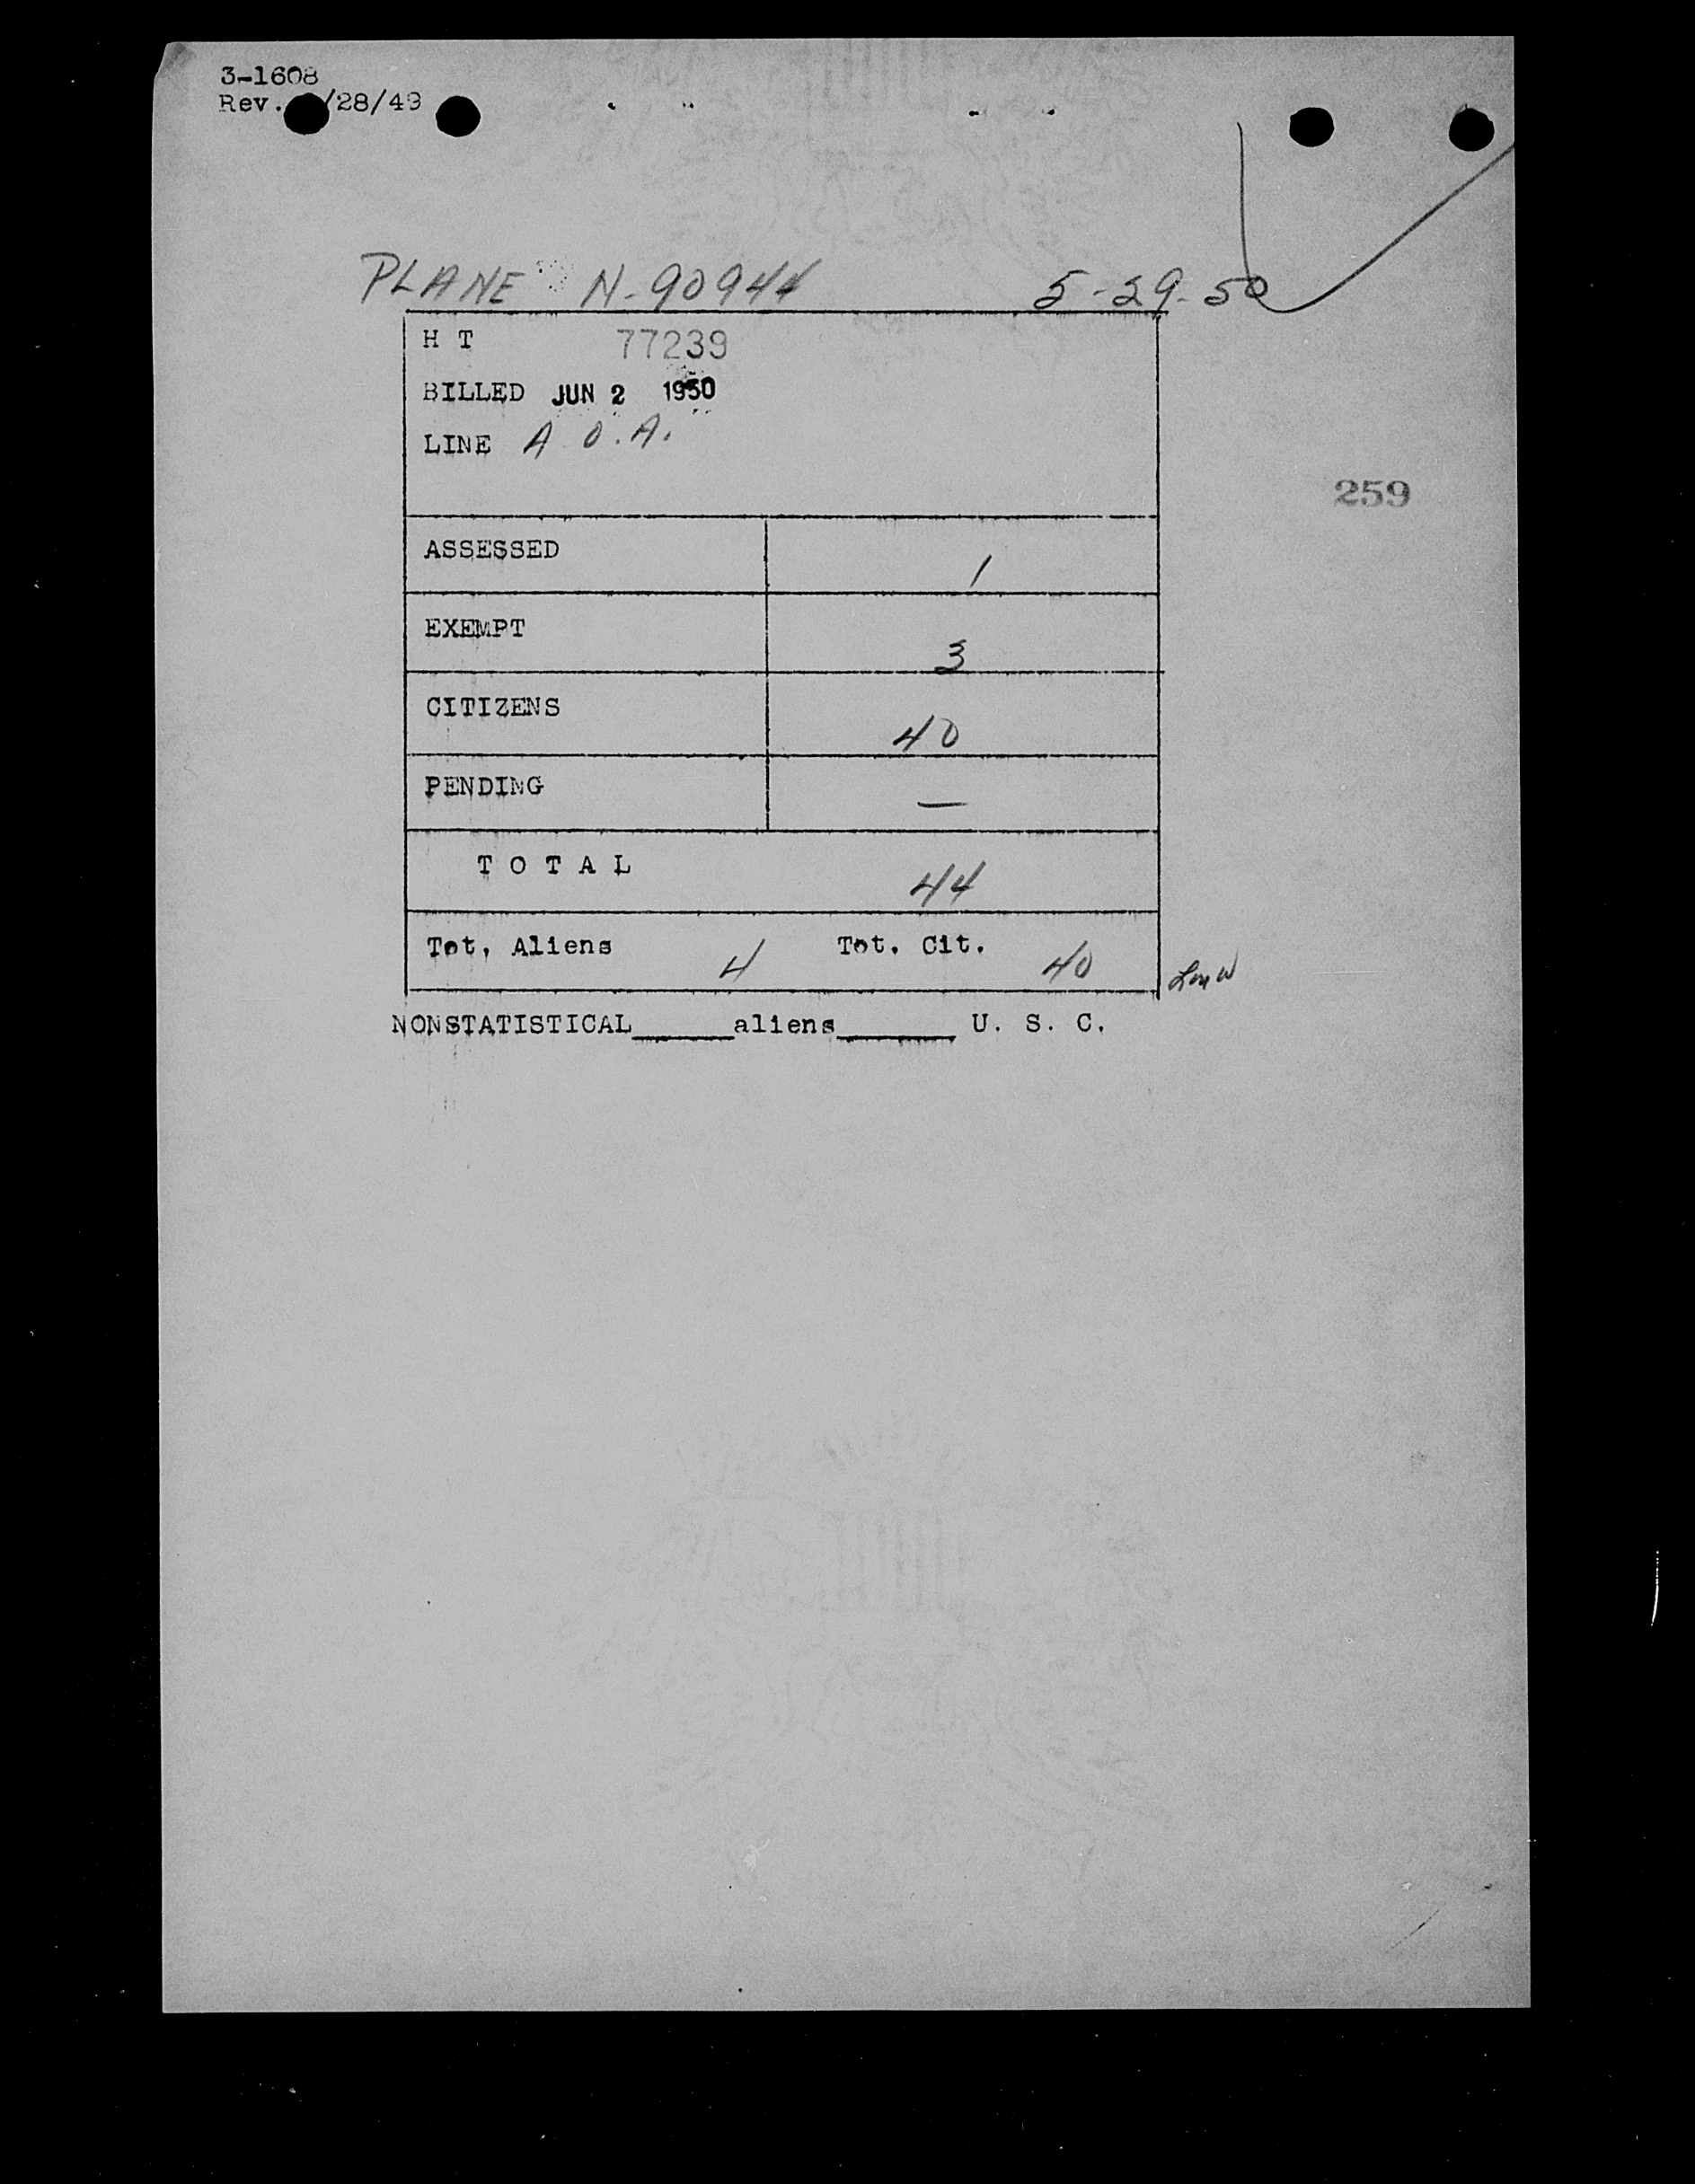 3-1608
Rev. /28/49
PLANE N-90944 5-29-50
H T 77239
BILLED JUN 2 1950
LINE A.O.A.
259
ASSESSED 1
EXEMPT 3
CITIZENS 40
PENDING —
T O T A L 44
Tot, Aliens 4 Tot. Cit. 40
NONSTATISTICAL______aliens_______ U. S. C.